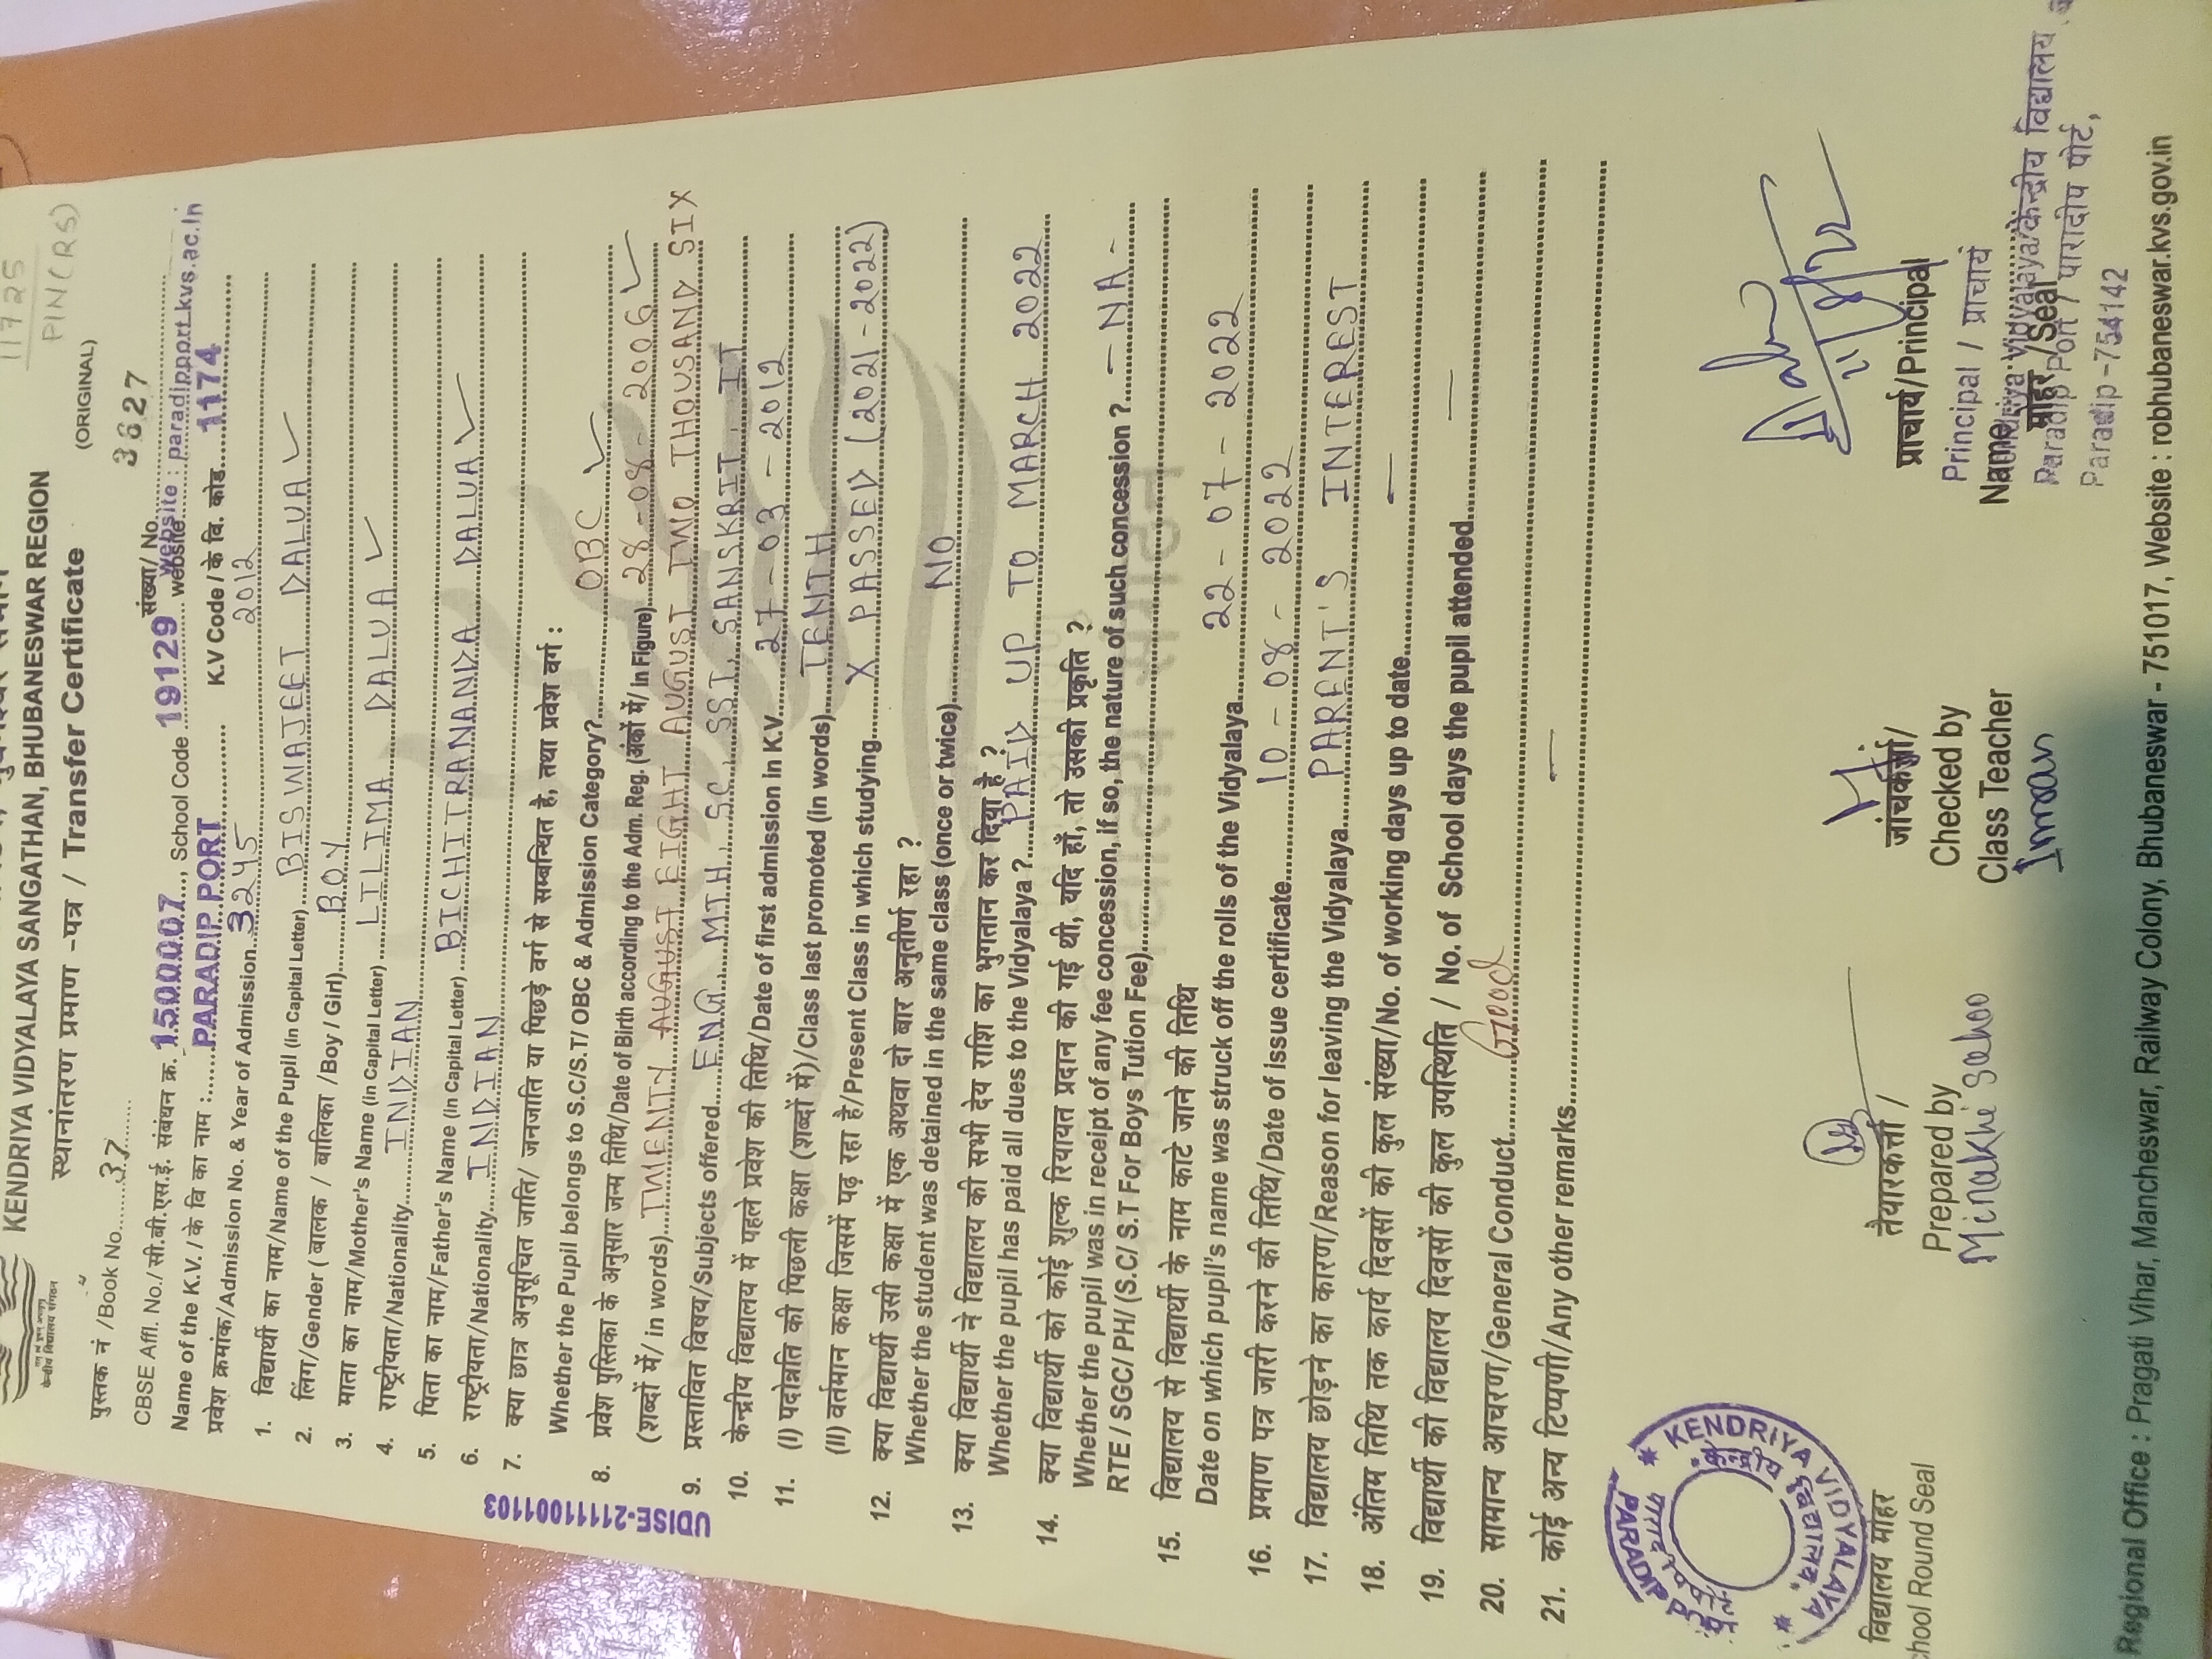 1725
PIN(RS)
KENDRIYA VIDYALAYA SANGATHAN, BHUBANESWAR REGION
स्थानांतरण प्रमाण -पत्र / Transfer Certificate
(ORIGINAL)
केन्द्रीय विद्यालय संगठन
पुस्तक नं /Book No. 37 संख्या/ No. 3627
CBSE Affl. No./ सी.बी.एस.ई. संबंधन क्र. 150007, School Code 19129 website website : paradipport.kvs.ac.in
Name of the K.V. / के वि का नाम : PARADIP PORT K.V Code / के वि. कोड 1174
प्रवेश क्रमांक/Admission No. & Year of Admission 3245 2012
1. विद्यार्थी का नाम/Name of the Pupil (in Capital Letter) BISWAJEET DALUA ✓
2. लिंग/Gender ( बालक / बालिका /Boy / Girl) BOY
3. माता का नाम/Mother's Name (in Capital Letter) LILIMA DALUA ✓
4. राष्ट्रीयता/Nationality INDIAN
5. पिता का नाम/Father's Name (in Capital Letter) BICHITRANANDA DALUA ✓
6. राष्ट्रीयता/Nationality INDIAN
7. क्या छात्र अनुसूचित जाति/ जनजाति या पिछड़े वर्ग से सम्बन्धित है, तथा प्रवेश वर्ग :
Whether the Pupil belongs to S.C/S.T/ OBC & Admission Category? OBC ✓
8. प्रवेश पुस्तिका के अनुसार जन्म तिथि/Date of Birth according to the Adm. Reg. (अंकों में/ in Figure) 28-08-2006 ✓
(शब्दों में/ in words) TWENTY AUGUST EIGHT AUGUST TWO THOUSAND SIX
9. प्रस्तावित विषय/Subjects offered ENG, MTH, SC, SST, SANSKRIT, IT
10. केन्द्रीय विद्यालय में पहले प्रवेश की तिथि/Date of first admission in K.V 27-03-2012
11. (I) पदोन्नति की पिछली कक्षा (शब्दों में)/Class last promoted (in words) TENTH
(II) वर्तमान कक्षा जिसमें पढ़ रहा है/Present Class in which studying X PASSED (2021-2022)
12. क्या विद्यार्थी उसी कक्षा में एक अथवा दो बार अनुतीर्ण रहा ?
Whether the student was detained in the same class (once or twice) NO
13. क्या विद्यार्थी ने विद्यालय की सभी देय राशि का भुगतान कर दिया है ?
Whether the pupil has paid all dues to the Vidyalaya ? PAID UP TO MARCH 2022
14. क्या विद्यार्थी को कोई शुल्क रियायत प्रदान की गई थी, यदि हाँ, तो उसकी प्रकृति ?
Whether the pupil was in receipt of any fee concession, if so, the nature of such concession ? -NA-
RTE / SGC/ PH/ (S.C/ S.T For Boys Tution Fee)
15. विद्यालय से विद्यार्थी के नाम काटे जाने की तिथि
Date on which pupil's name was struck off the rolls of the Vidyalaya 22-07-2022
16. प्रमाण पत्र जारी करने की तिथि/Date of issue certificate 10-08-2022
17. विद्यालय छोड़ने का कारण/Reason for leaving the Vidyalaya PARENT'S INTEREST
18. अंतिम तिथि तक कार्य दिवसों की कुल संख्या/No. of working days up to date —
19. विद्यार्थी की विद्यालय दिवसों की कुल उपस्थिति / No. of School days the pupil attended —
20. सामान्य आचरण/General Conduct Good
21. कोई अन्य टिप्पणी/Any other remarks —
UDISE-21111001103
KENDRIYA VIDYALAYA
PARADIP
विद्यालय मोहर
chool Round Seal
तैयारकर्त्ता /
Prepared by
Minakhi Sahoo
जांचकर्त्ता/
Checked by
Class Teacher
Imran
प्राचार्य/Principal
Name
मोहर /Seal
Principal / प्राचार्य
Kendriya Vidyalaya/केन्द्रीय विद्यालय
Paradip Port / पारादीप पोर्ट,
Paradip-754142
Regional Office : Pragati Vihar, Mancheswar, Railway Colony, Bhubaneswar - 751017, Website : robhubaneswar.kvs.gov.in